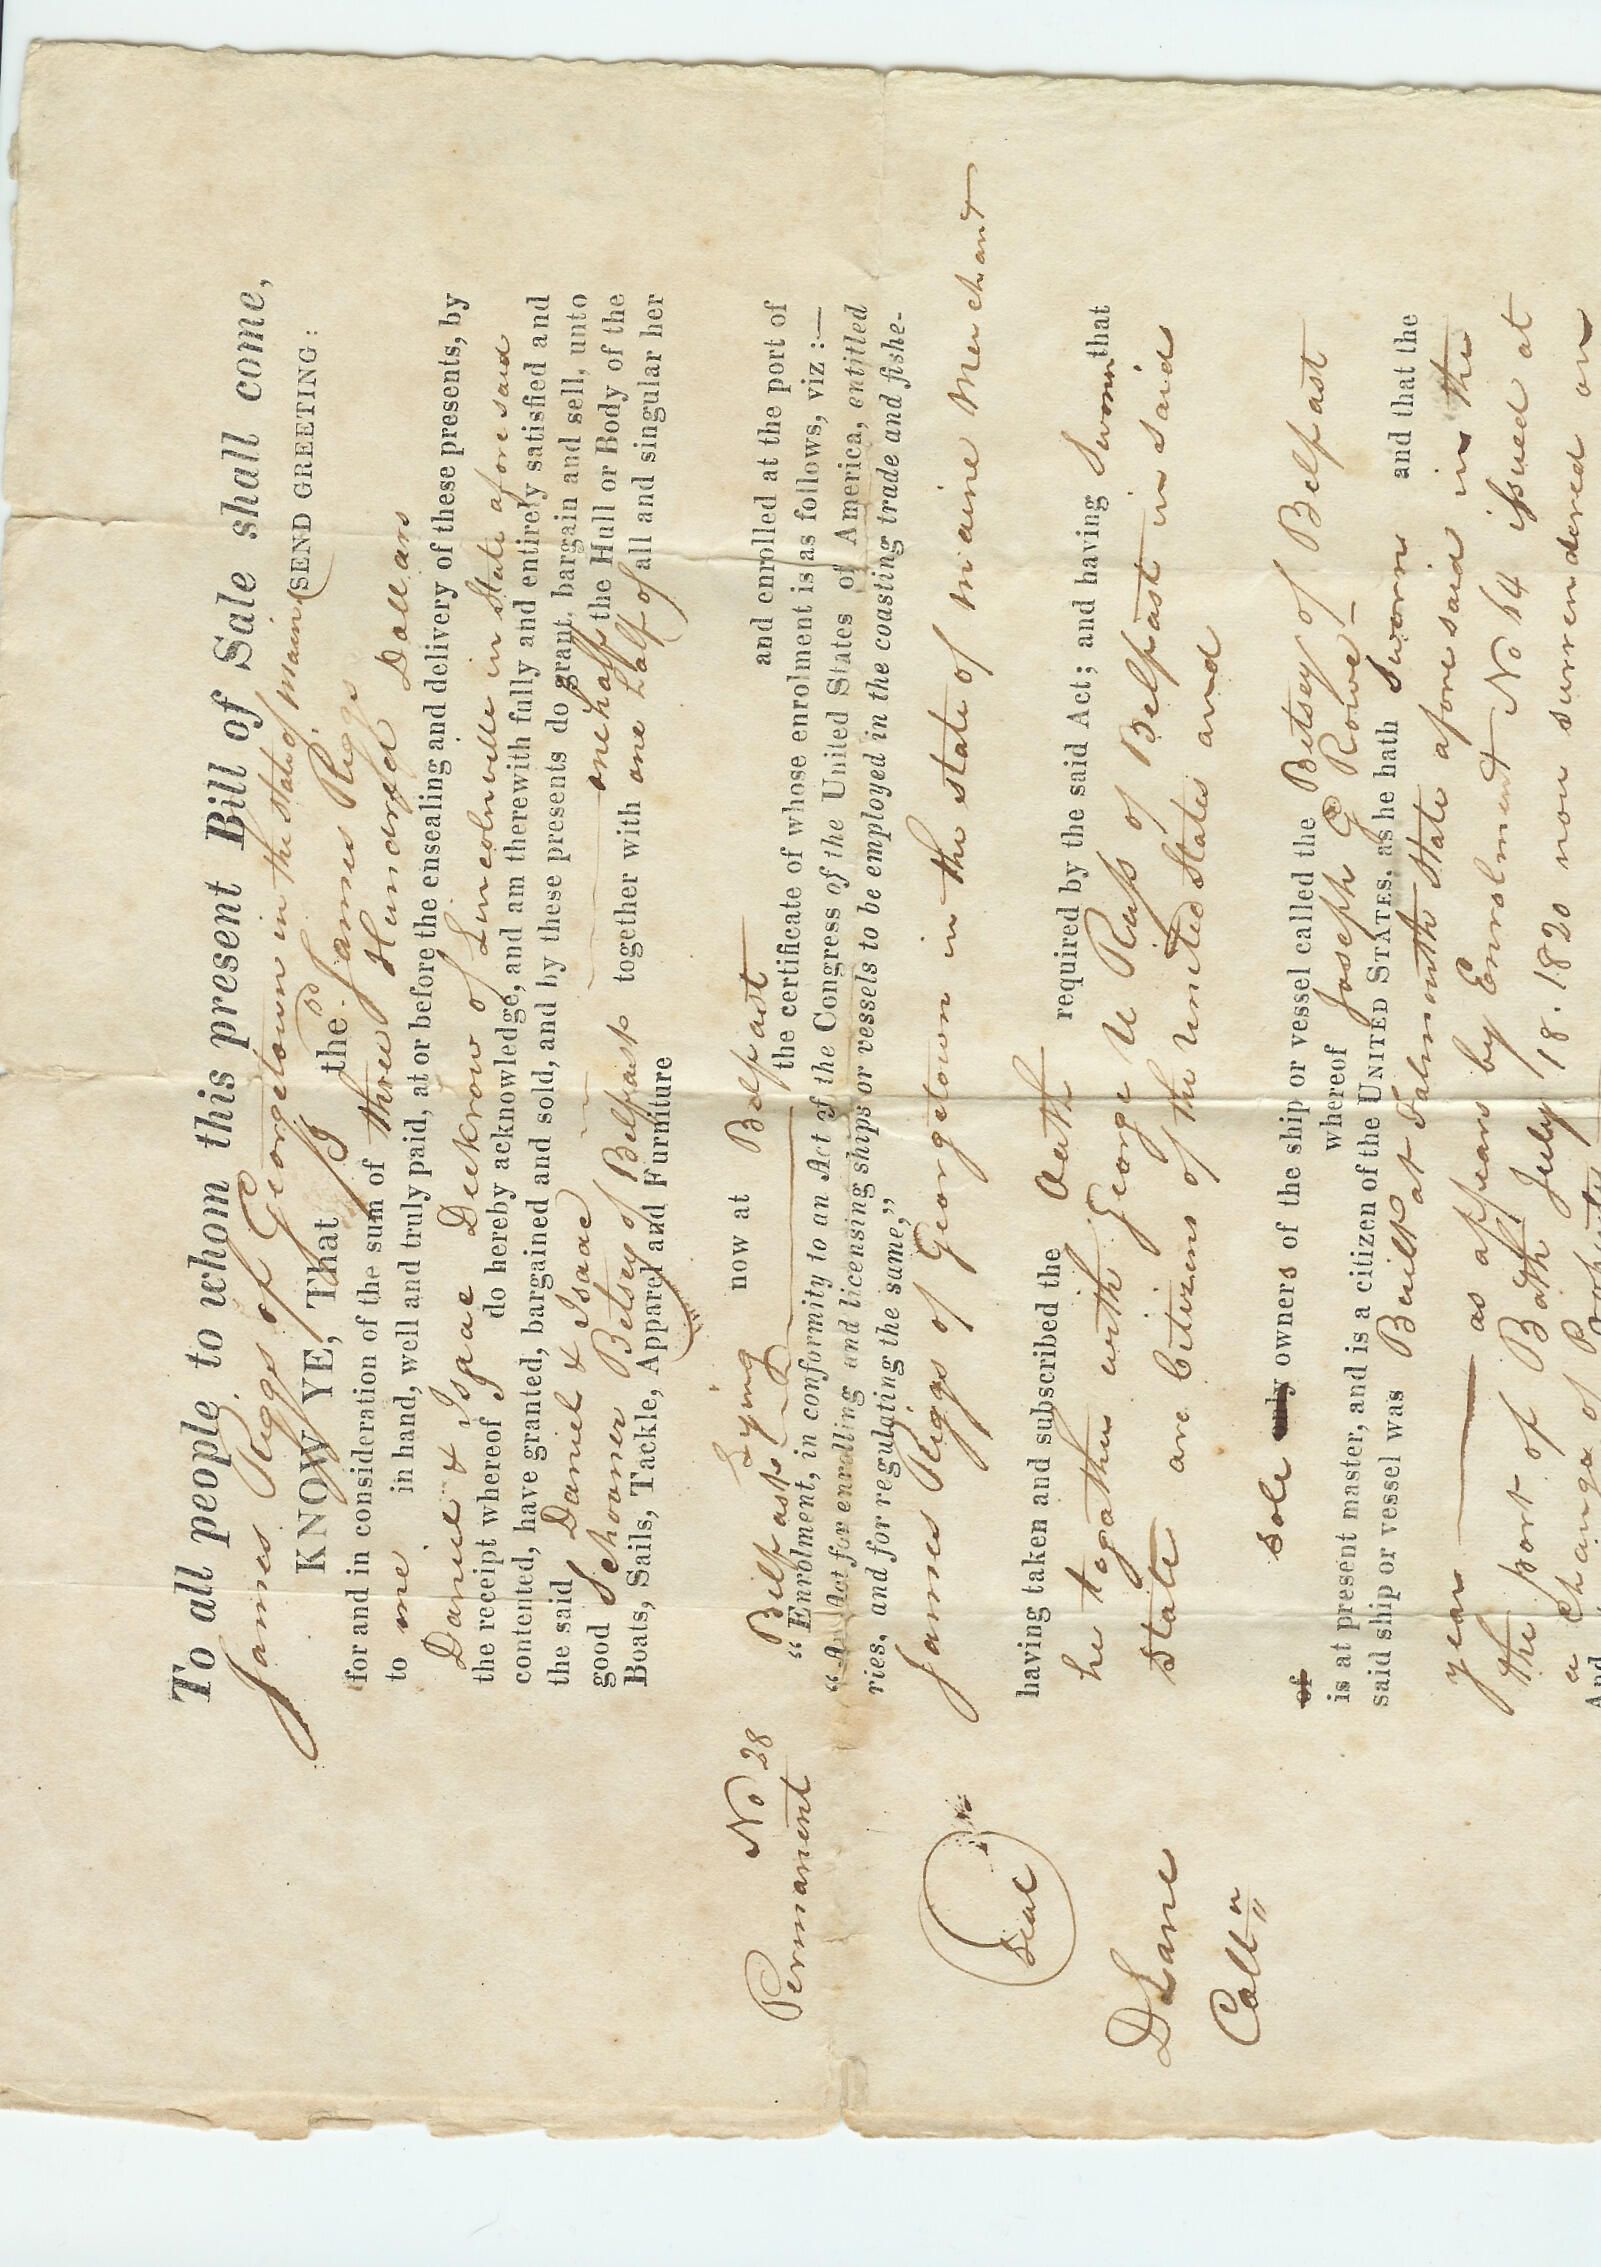 To all people to whom this present Bill of Sale shall come,
James Riggs of Georgetown in the State of Maine SEND GREETING:
KNOW YE, That I the sd James Riggs
for and in consideration of the sum of three Hundred Dollars
to me in hand, well and truly paid, at or before the ensealing and delivery of these presents, by
Daniel & Isaac Deckrow of Lincolnville in State aforesaid
the receipt whereof do hereby acknowledge, and am therewith fully and entirely satisfied and
contented, have granted, bargained and sold, and by these presents do grant, bargain and sell, unto
the said Daniel & Isaac one half the Hull or Body of the
good Schooner Betsey of Belfast together with one half of all and singular her
Boats, Sails, Tackle, Apparel and Furniture
No 28
Permanent
Lying now at Belfast and enrolled at the port of
Belfast the certificate of whose enrolment is as follows, viz :—
“Enrolment, in conformity to an Act of the Congress of the United States of America, entitled
“An Act for enrolling and licensing ships or vessels to be employed in the coasting trade and fishe-
ries, and for regulating the same,”
James Riggs of Georgetown in the state of maine Merchant
Seal
having taken and subscribed the Oath required by the said Act; and having Sworn that
he togather with George U Russ of Belfast in said
State are Citizens of the United States and
D Lane
Coll
sole only owners of the ship or vessel called the Betsey of Belfast
of whereof Joseph G Rowe
is at present master, and is a citizen of the UNITED STATES, as he hath Sworn and that the
said ship or vessel was Built at Falmouth State aforesaid in the
year as appears by Enrolment No 64 issued at
the port of Bath July 18. 1820 now surrendered on
a Change of Property
And